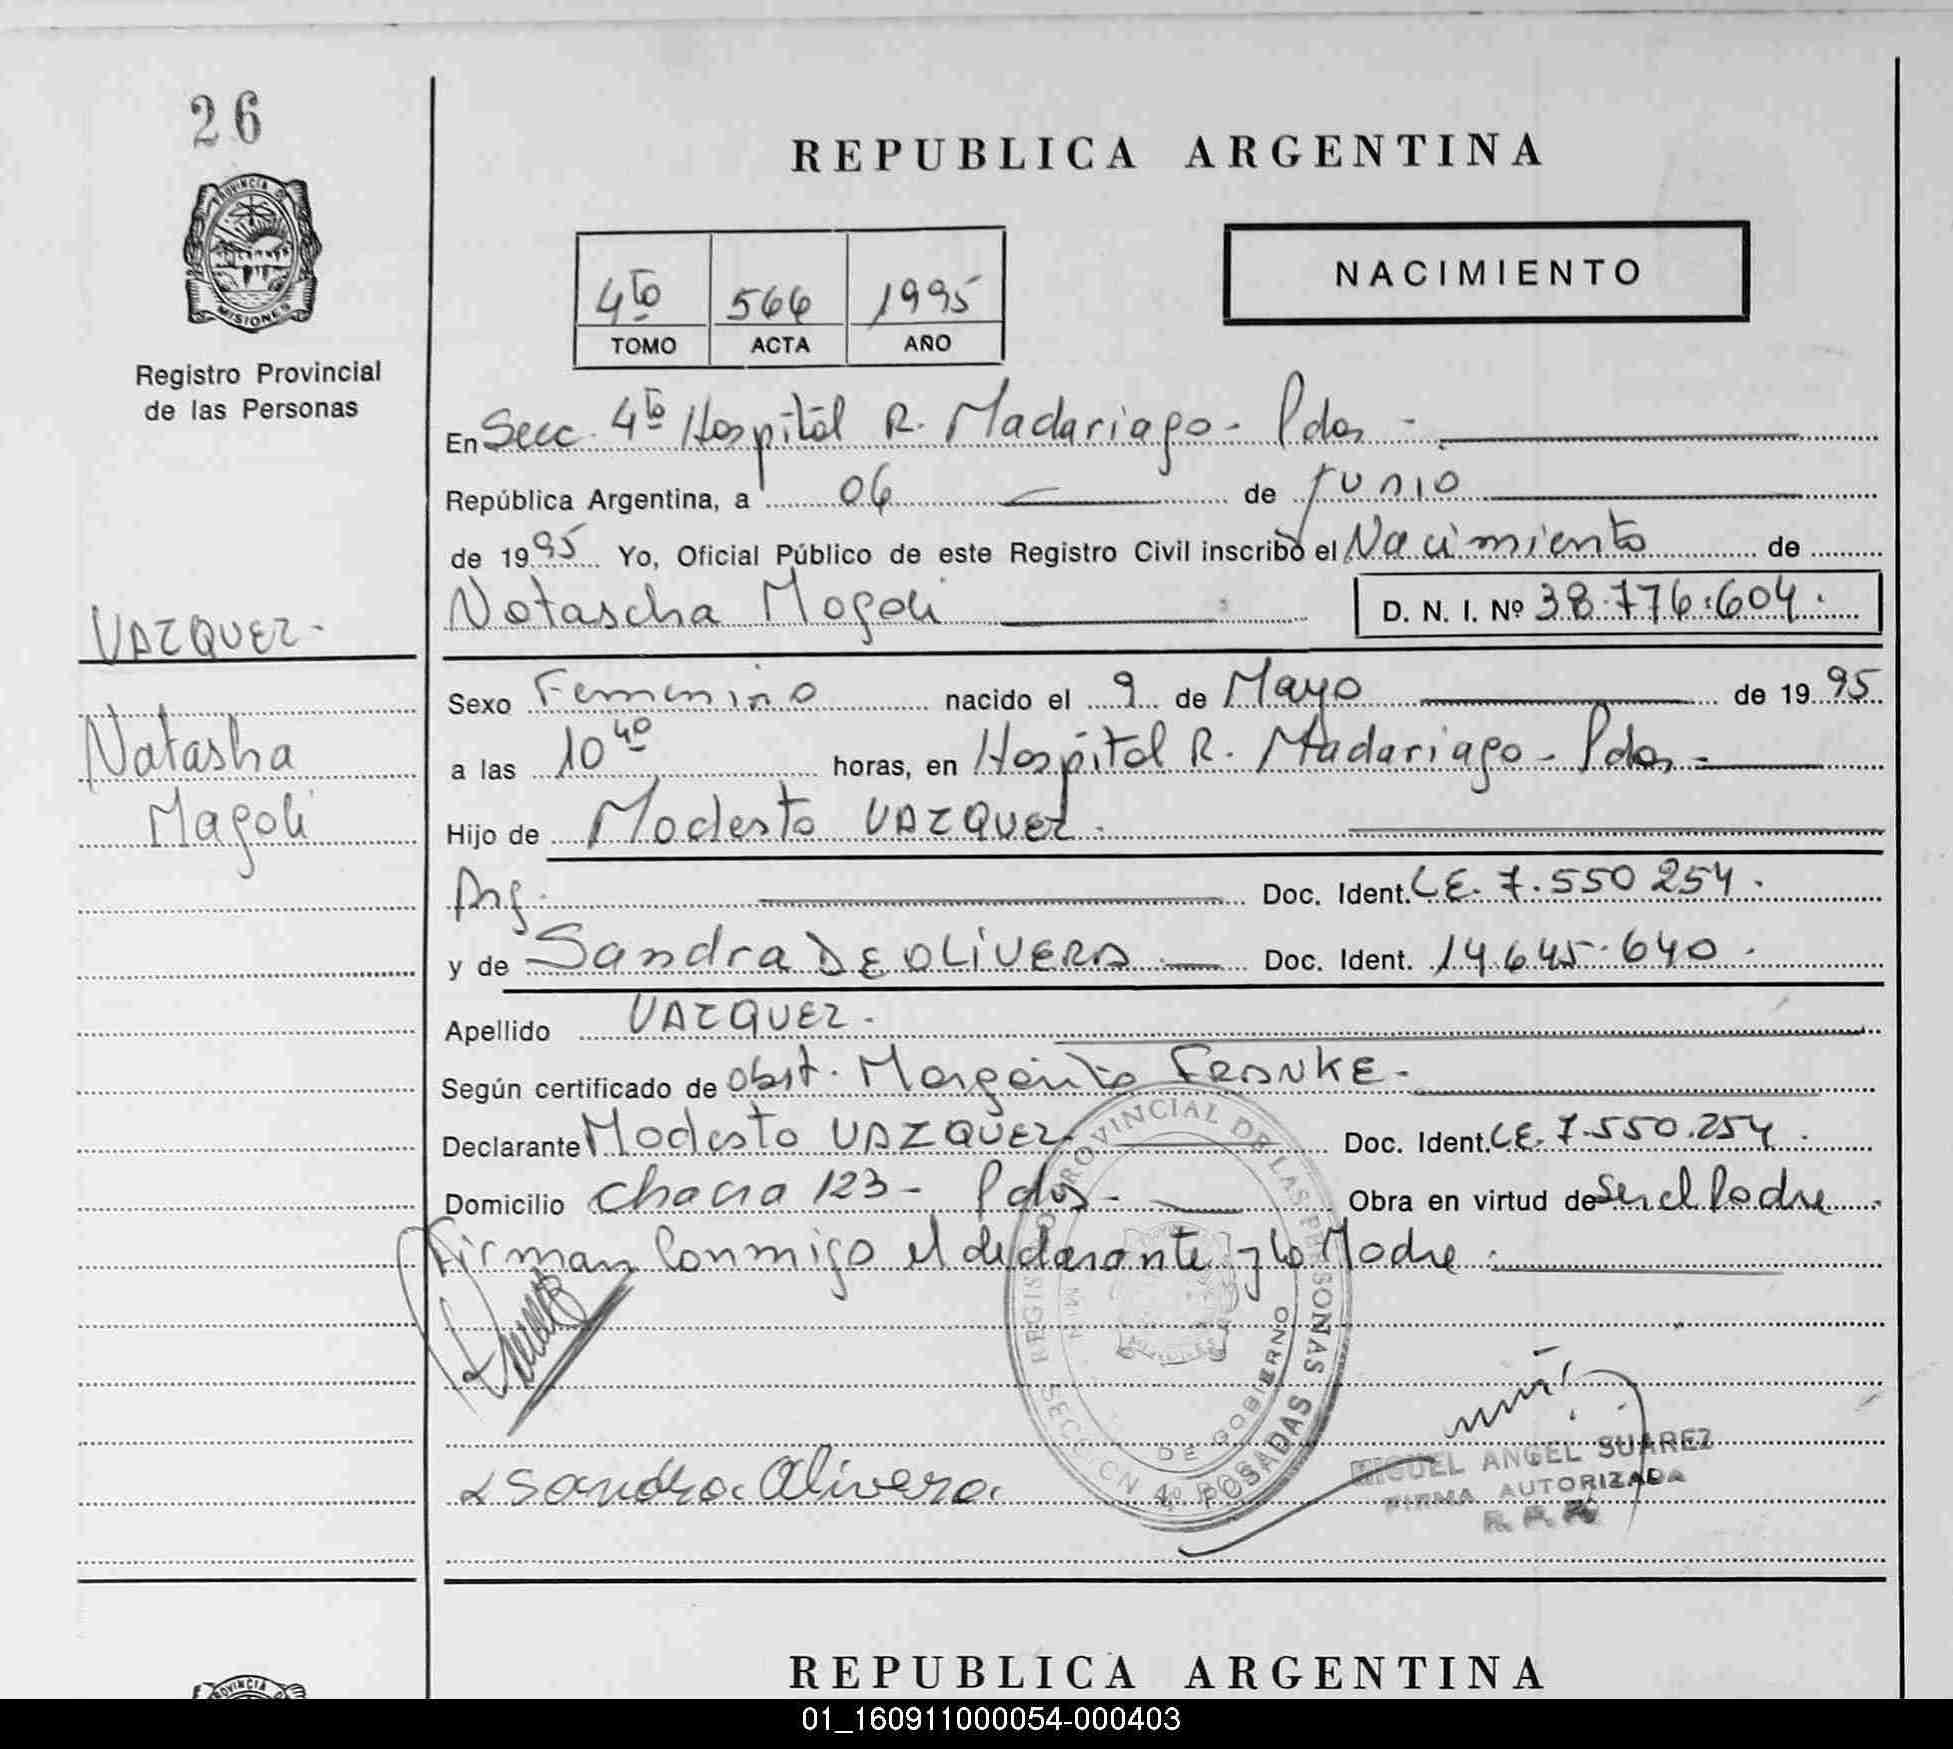 26
REPUBLICA ARGENTINA
PROVINCIA DE
MISIONES
Registro Provincial
de las Personas
NACIMIENTO
4to 566 1995
TOMO ACTA AÑO
En Secc. 4to Hospital R. Madariaga - Pdas -
República Argentina, a 06 de Junio
de 1995 Yo, Oficial Público de este Registro Civil inscribo el Nacimiento de
Natascha Magali D. N. I. Nº 38.776.604.
VAZQUEZ-
Natasha
Magali
Sexo Femenino nacido el 9 de Mayo de 1995
a las 10 40 horas, en Hospital R. Madariaga - Pdas -
Hijo de Modesto VAZQUEZ.
Arg. Doc. Ident. LE. 7.550 254.
y de Sandra DE OLIVERA Doc. Ident. 14.645.640.
Apellido VAZQUEZ.
Según certificado de obst. Margarita FRANKE-
Declarante Modesto VAZQUEZ Doc. Ident. LE. 7.550.254.
Domicilio chacra 123 - Pdas - Obra en virtud de Ser el Padre
Firman Conmigo el declarante y la Madre.
REGISTRO PROVINCIAL DE LAS PERSONAS
DE GOBIERNO
SECCION 4º POSADAS
MISIONES
Sandra Olivera
MIGUEL ANGEL SUAREZ
FIRMA AUTORIZADA
REPUBLICA ARGENTINA
PROVINCIA
01_160911000054-000403